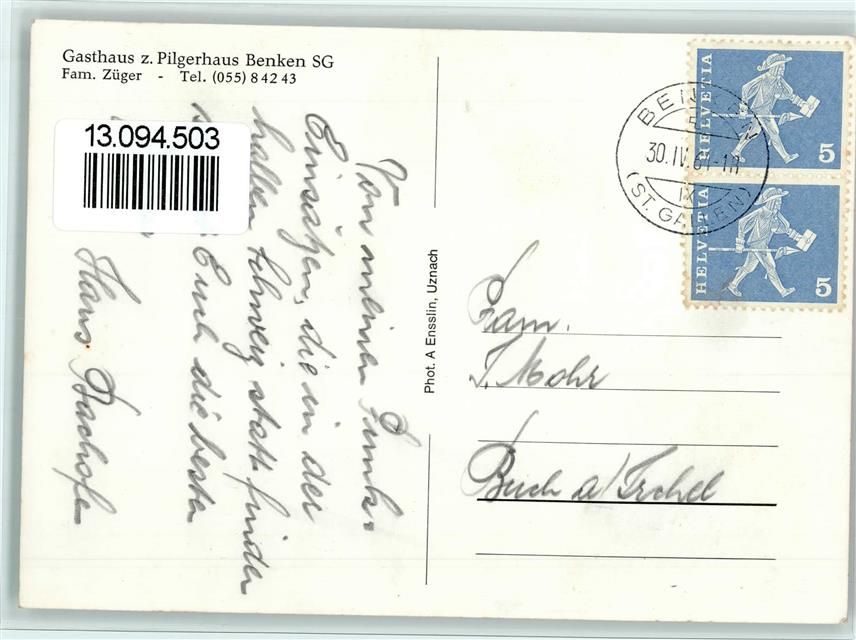 Gasthaus z. Pilgerhaus Benken SG
Fam. Züger - Tel. (055) 8 42 43
13.094.503
Von meinen Funk-
Einsätzen, die in der
halben Schweiz statt finden
Euch die besten
Hans Bachofen
Phot. A Ensslin, Uznach
HELVETIA
5
HELVETIA
5
30.IV.
IX
(ST. GALLEN)
Fam.
J. Mohr
Buch a/Irchel